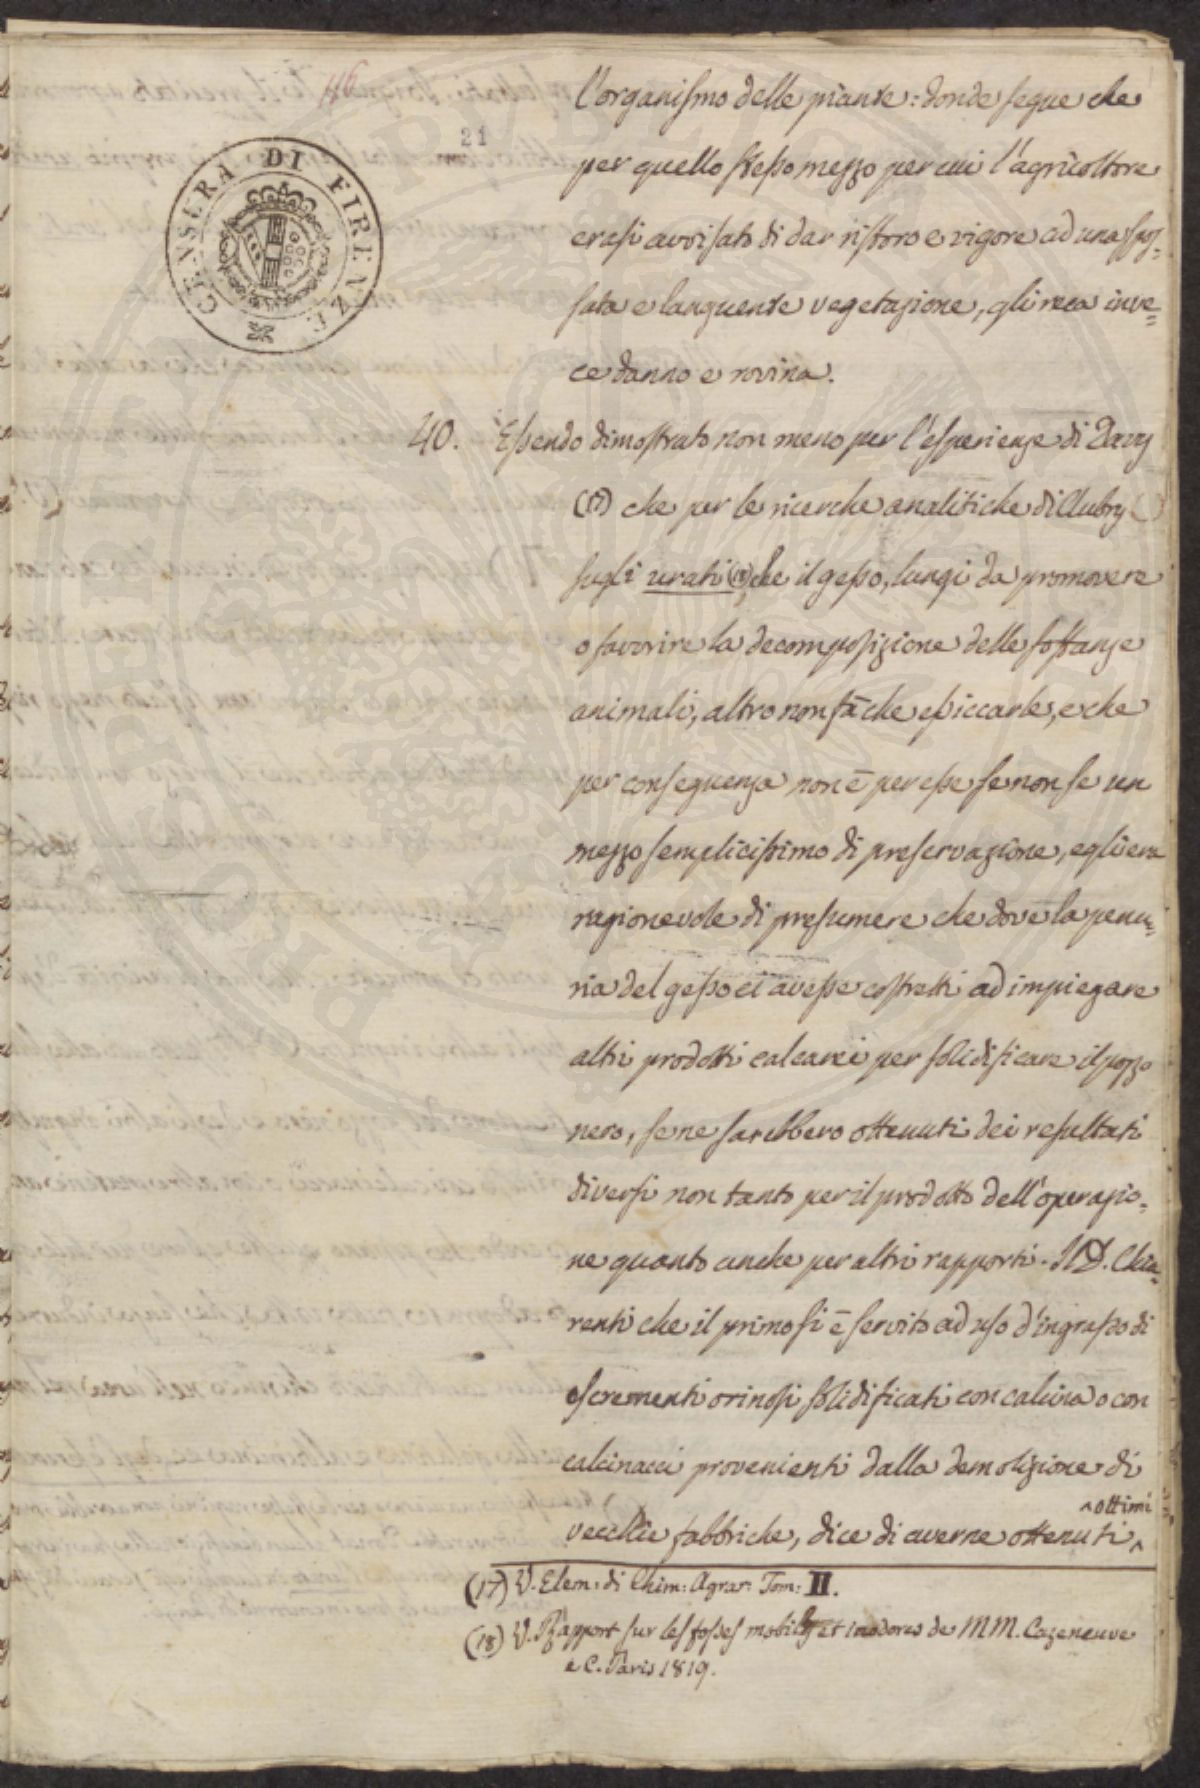 46
21
CENSURA DI FIRENZE
l'organismo delle piante: donde segue che
per quello stesso mezzo per cui l'agricoltore
erasi avvisato di dar ristoro e vigore ad una spos=
sata e languente vegetazione, gli reca inve=
ce danno e rovina.
40. Essendo dimostrato non meno per l'esperienze di Davy
(17) che per le ricerche analitiche di Clubry ( )
sugli urati (18) che il gesso, lungi da promovere
o favorire la decomposizione delle sostanze
animali, altro non fà che essiccarle, e che
per conseguenza non è per esse se non se un
mezzo semplicissimo di preservazione, egli era
ragionevole di presumere che dove la penu=
ria del gesso ci avesse costretti ad impiegare
altri prodotti calcarei per solidificare il pozzo
nero, se ne sarebbero ottenuti dei resultati
diversi non tanto per il prodotto dell'operazio=
ne quanto anche per altri rapporti. Il D. Chia=
renti che il primo si è servito ad uso d'ingrasso di
escrementi orinosi solidificati con calcina o con
calcinacci provenienti dalla demolizione di
^ottimi
vecchie fabbriche, dice di averne ottenuti^
(17) V. Elem: di Chim: Agrar: Tom: II.
(18) V. Rapport sur les fosses mobiles et inodores de MM. Cazeneuve
e C. Paris 1819.